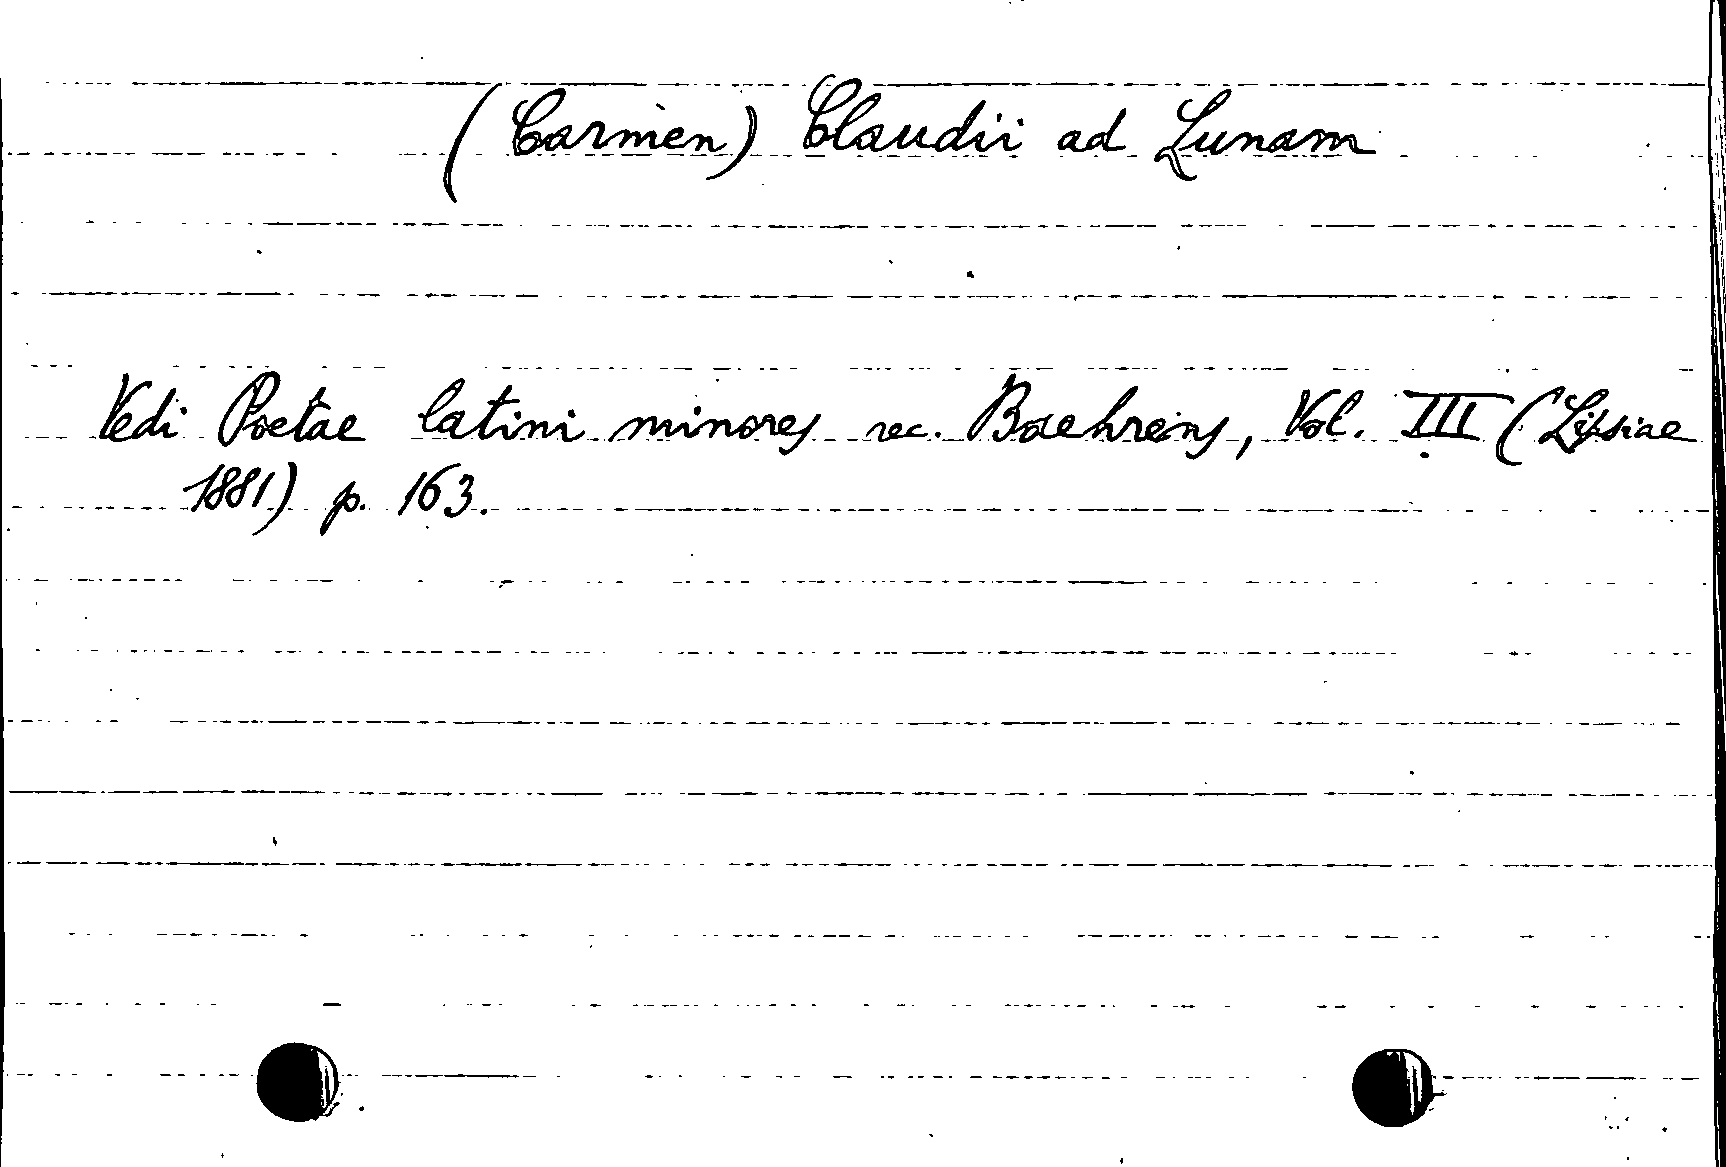 (Carmen) Claudii ad Lunam
Vedi Poetae latini minores rec. Baehrens, Vol. III (Lipsiae
1881) p. 163.